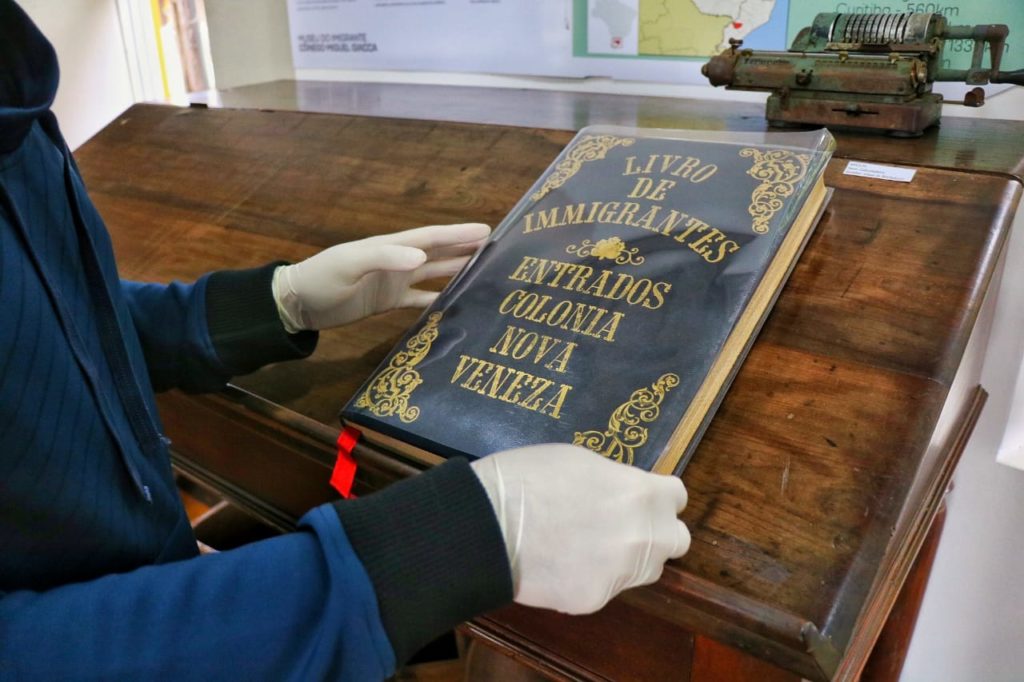 MUSEU DO IMIGRANTE
CÔNEGO MIGUEL GIACCA
Curitiba - 560km
LIVRO
DE
IMMIGRANTES
ENTRADOS
COLONIA
NOVA
VENEZA